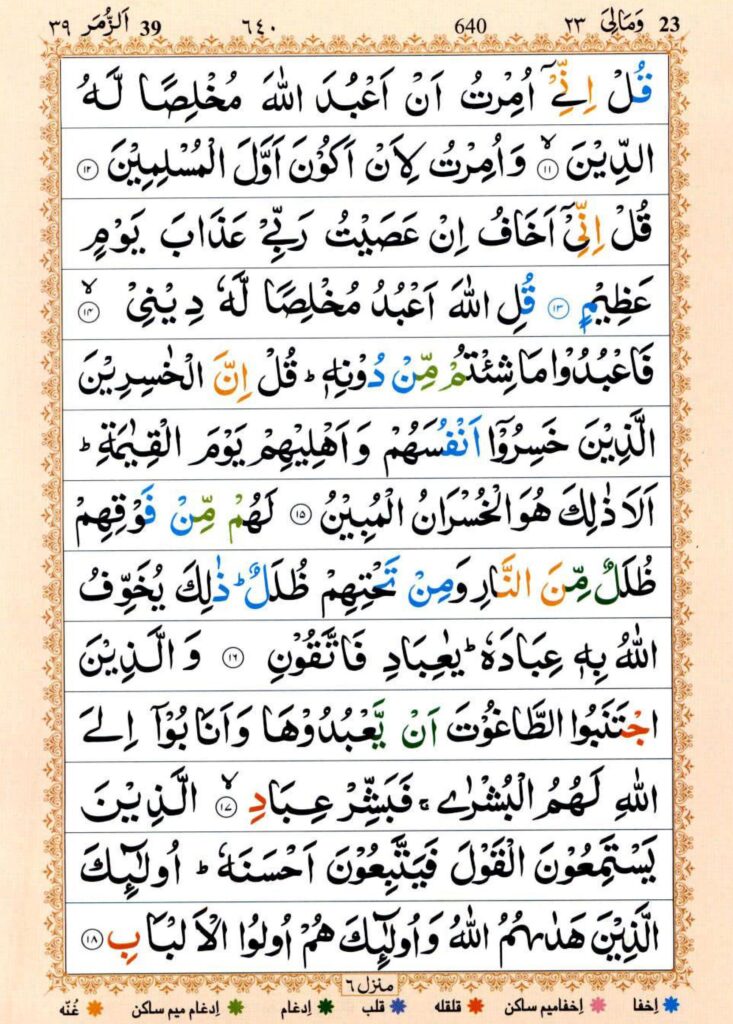 23 وَمَالِیَ ٢٣ 640 ٦٤٠ 39 اَلزُّمَر ٣٩
قُلْ اِنِّیْۤ اُمِرْتُ اَنْ اَعْبُدَ اللّٰهَ مُخْلِصًا لَّهُ
الدِّیْنَ ۙ‏ ١١ وَاُمِرْتُ لِاَنْ اَكُوْنَ اَوَّلَ الْمُسْلِمِیْنَ ١٢
قُلْ اِنِّیْۤ اَخَافُ اِنْ عَصَیْتُ رَبِّیْ عَذَابَ یَوْمٍ
عَظِیْمٍ ١٣ قُلِ اللّٰهَ اَعْبُدُ مُخْلِصًا لَّهٗ دِیْنِیْ ۙ‏ ١٤
فَاعْبُدُوْا مَا شِئْتُمْ مِّنْ دُوْنِهٖ ؕ قُلْ اِنَّ الْخٰسِرِیْنَ
الَّذِیْنَ خَسِرُوْۤا اَنْفُسَهُمْ وَاَهْلِیْهِمْ یَوْمَ الْقِیٰمَةِ ؕ
اَلَا ذٰلِكَ هُوَ الْخُسْرَانُ الْمُبِیْنُ ١٥ لَهُمْ مِّنْ فَوْقِهِمْ
ظُلَلٌ مِّنَ النَّارِ وَمِنْ تَحْتِهِمْ ظُلَلٌ ؕ ذٰلِكَ یُخَوِّفُ
اللّٰهُ بِهٖ عِبَادَهٗ ؕ یٰعِبَادِ فَاتَّقُوْنِ ١٦ وَالَّذِیْنَ
اجْتَنَبُوا الطَّاغُوْتَ اَنْ یَّعْبُدُوْهَا وَاَنَابُوْۤا اِلَی
اللّٰهِ لَهُمُ الْبُشْرٰی ۚ فَبَشِّرْ عِبَادِ ۙ‏ ١٧ الَّذِیْنَ
یَسْتَمِعُوْنَ الْقَوْلَ فَیَتَّبِعُوْنَ اَحْسَنَهٗ ؕ اُولٰٓئِكَ
الَّذِیْنَ هَدٰىهُمُ اللّٰهُ وَاُولٰٓئِكَ هُمْ اُولُوا الْاَلْبَابِ ١٨
منزل ٦
اِخفا اِخفامیم ساکن قلقله قلب اِدغام اِدغام میم ساکن غُنّه